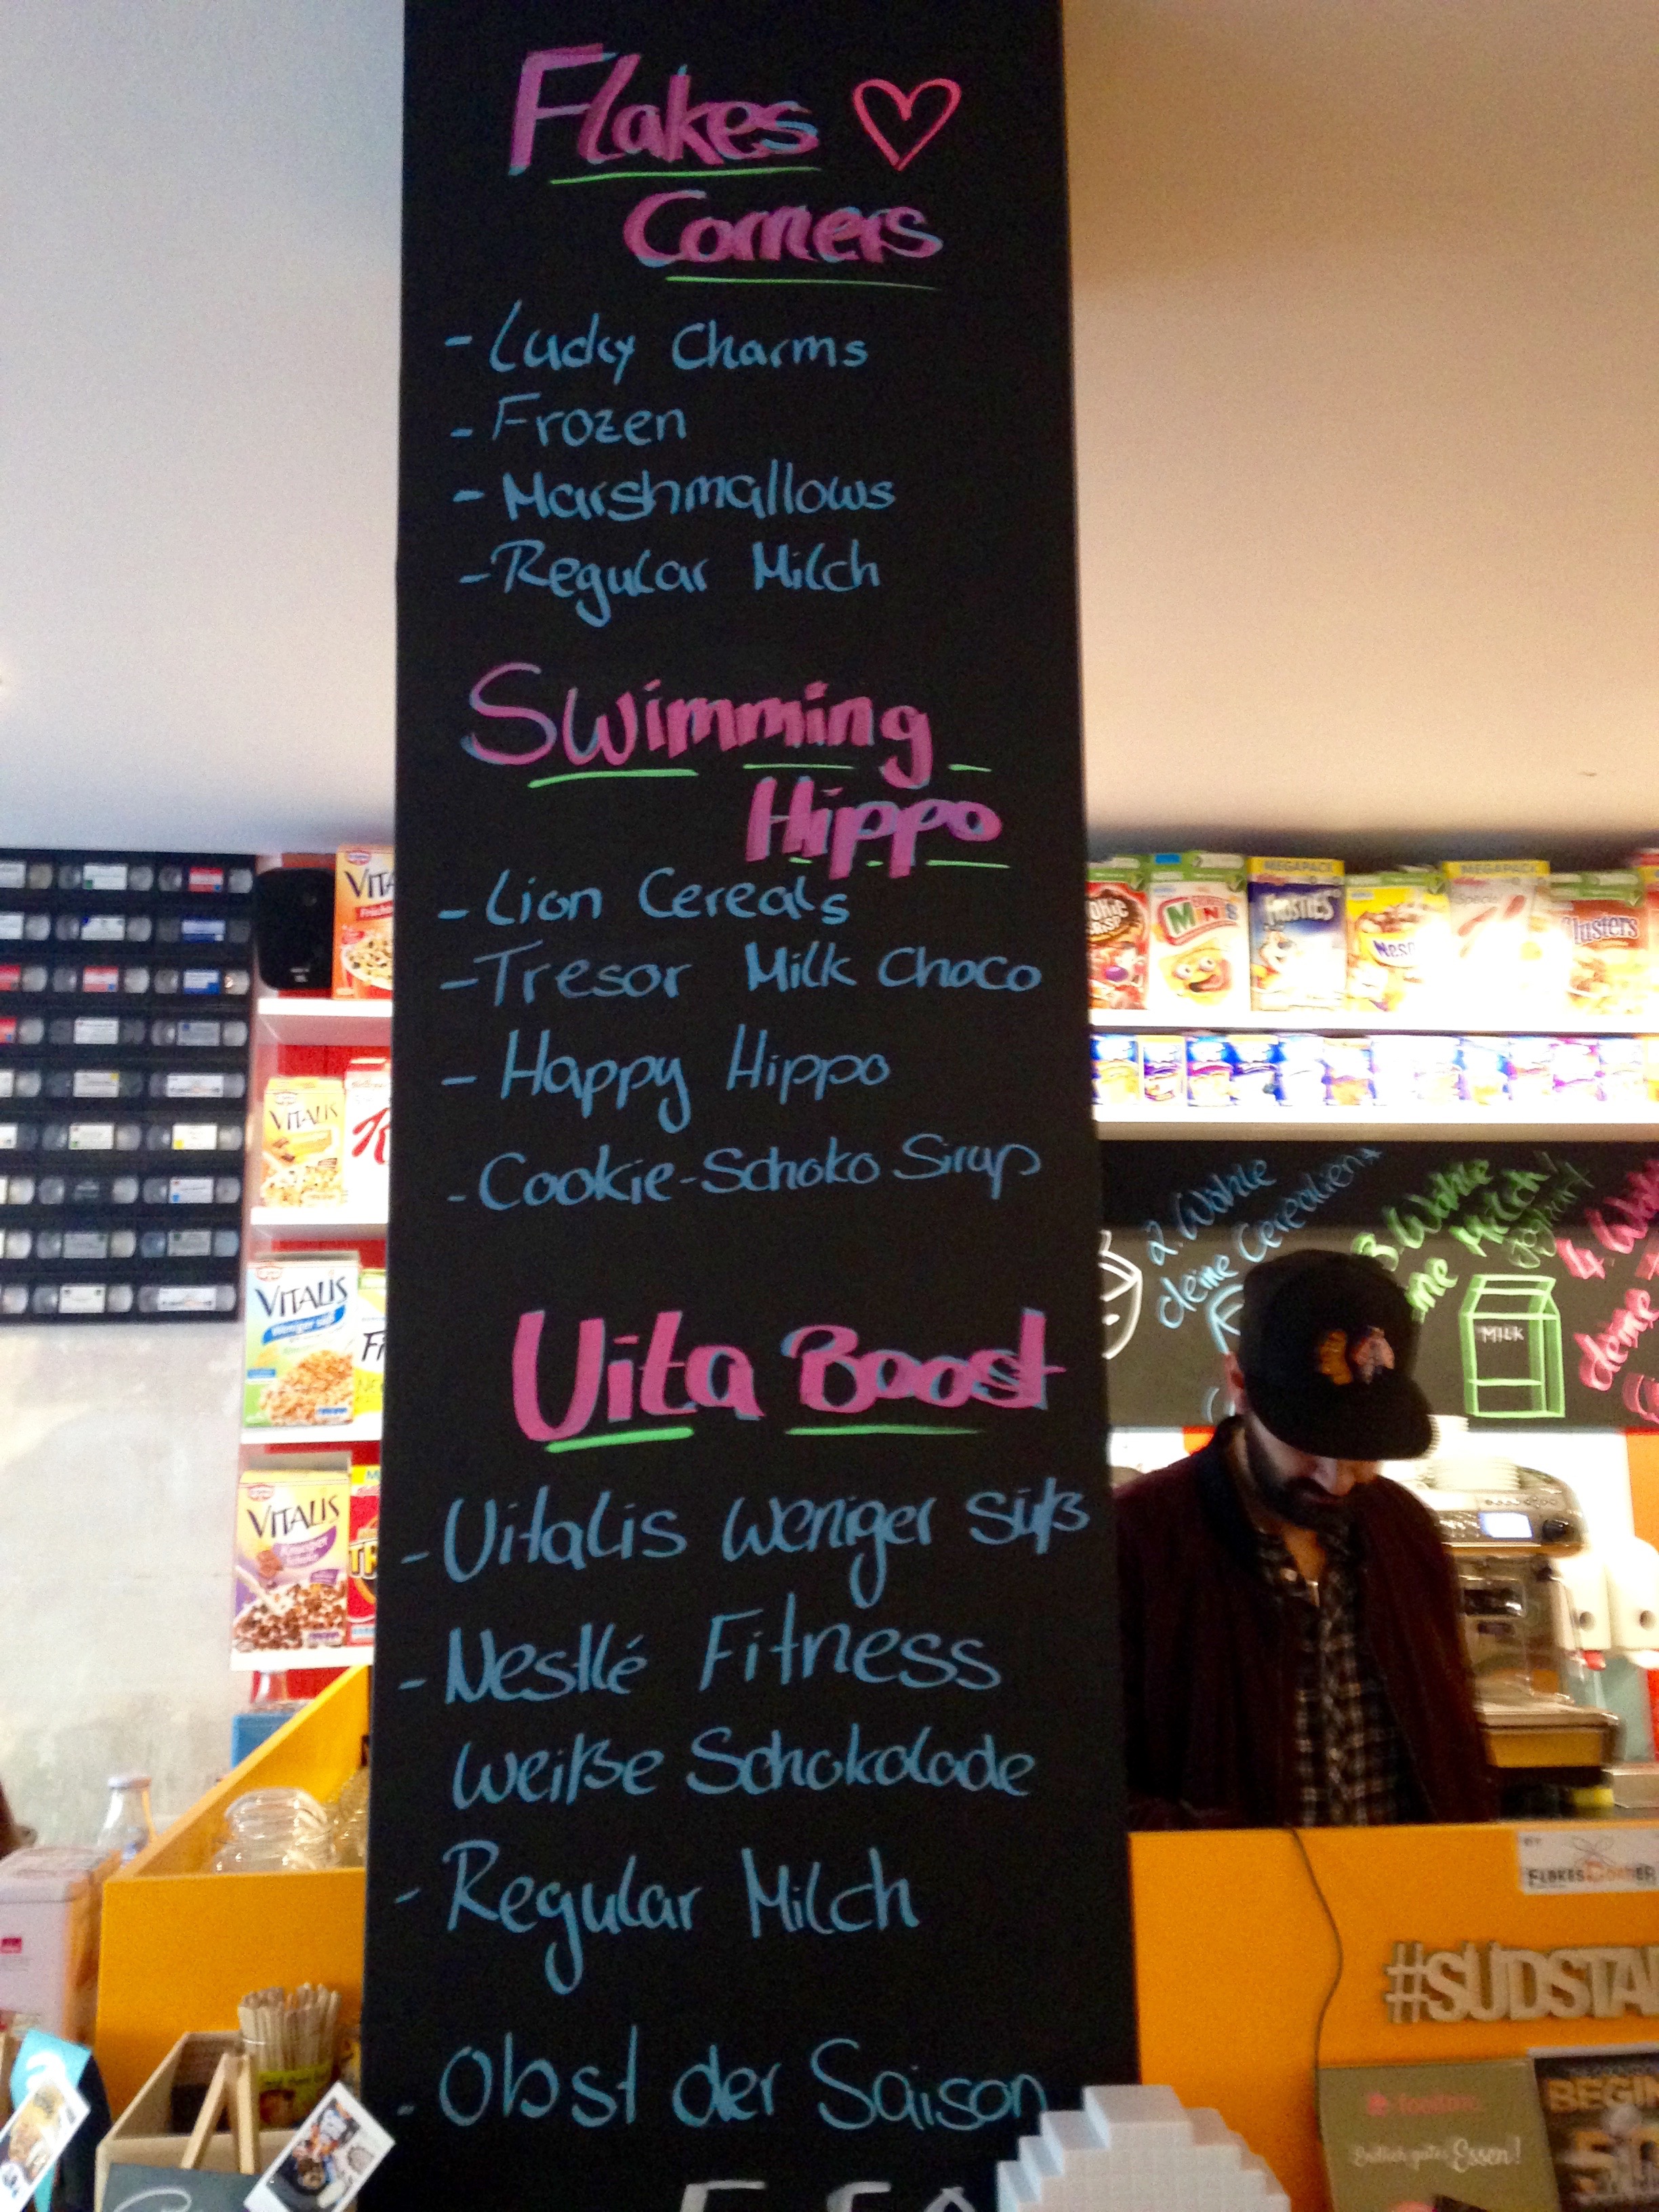 Flakes
Corners
- Lucky Charms
- Frozen
- Marshmallows
- Regular Milch
Swimming
Hippo
- Lion Cereals
- Tresor Milk Choco
- Happy Hippo
- Cookie-Schoko Sirup
Vita Boost
- Vitalis weniger süß
- Nestlé Fitness
weiße Schokolade
- Regular Milch
- Obst der Saison
VITALIS
VITALIS
Weniger süß
VITALIS
Knusper
Schoko
MINIS
MEGAPACK
FROSTIES
MEGAPACK
Clusters
2. Wähle
deine Cerealien
3. Wähle
Milch
Joghurt
MILK
deine
BY
FLAKES CORNER
#SÜDSTA
foodinc.
Endlich gutes Essen!
BEGIN